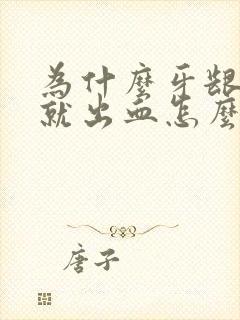 為什麼牙龈
就出血怎麼
唐子